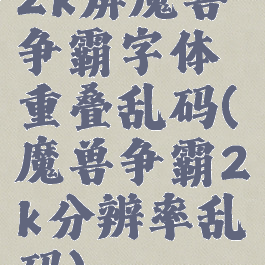 2k屏魔兽
争霸字体
重叠乱码(
魔兽争霸2
k分辨率乱
码)